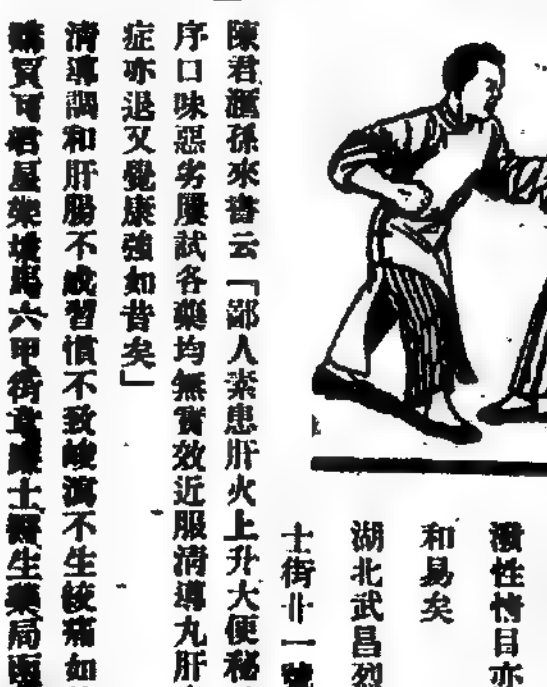 性情目亦
和易矣
湖北武昌烈
士街廿一號
陳君孫來書云「鄙人素患肝火上升大便秘
序口味惡劣屢試各藥均無實效近服清導丸肝
症亦退又覺康強如昔矣」
清導調和肝腸不成習慣不致峻瀉不生絞痛如
六甲街韋廉士醫生藥局函